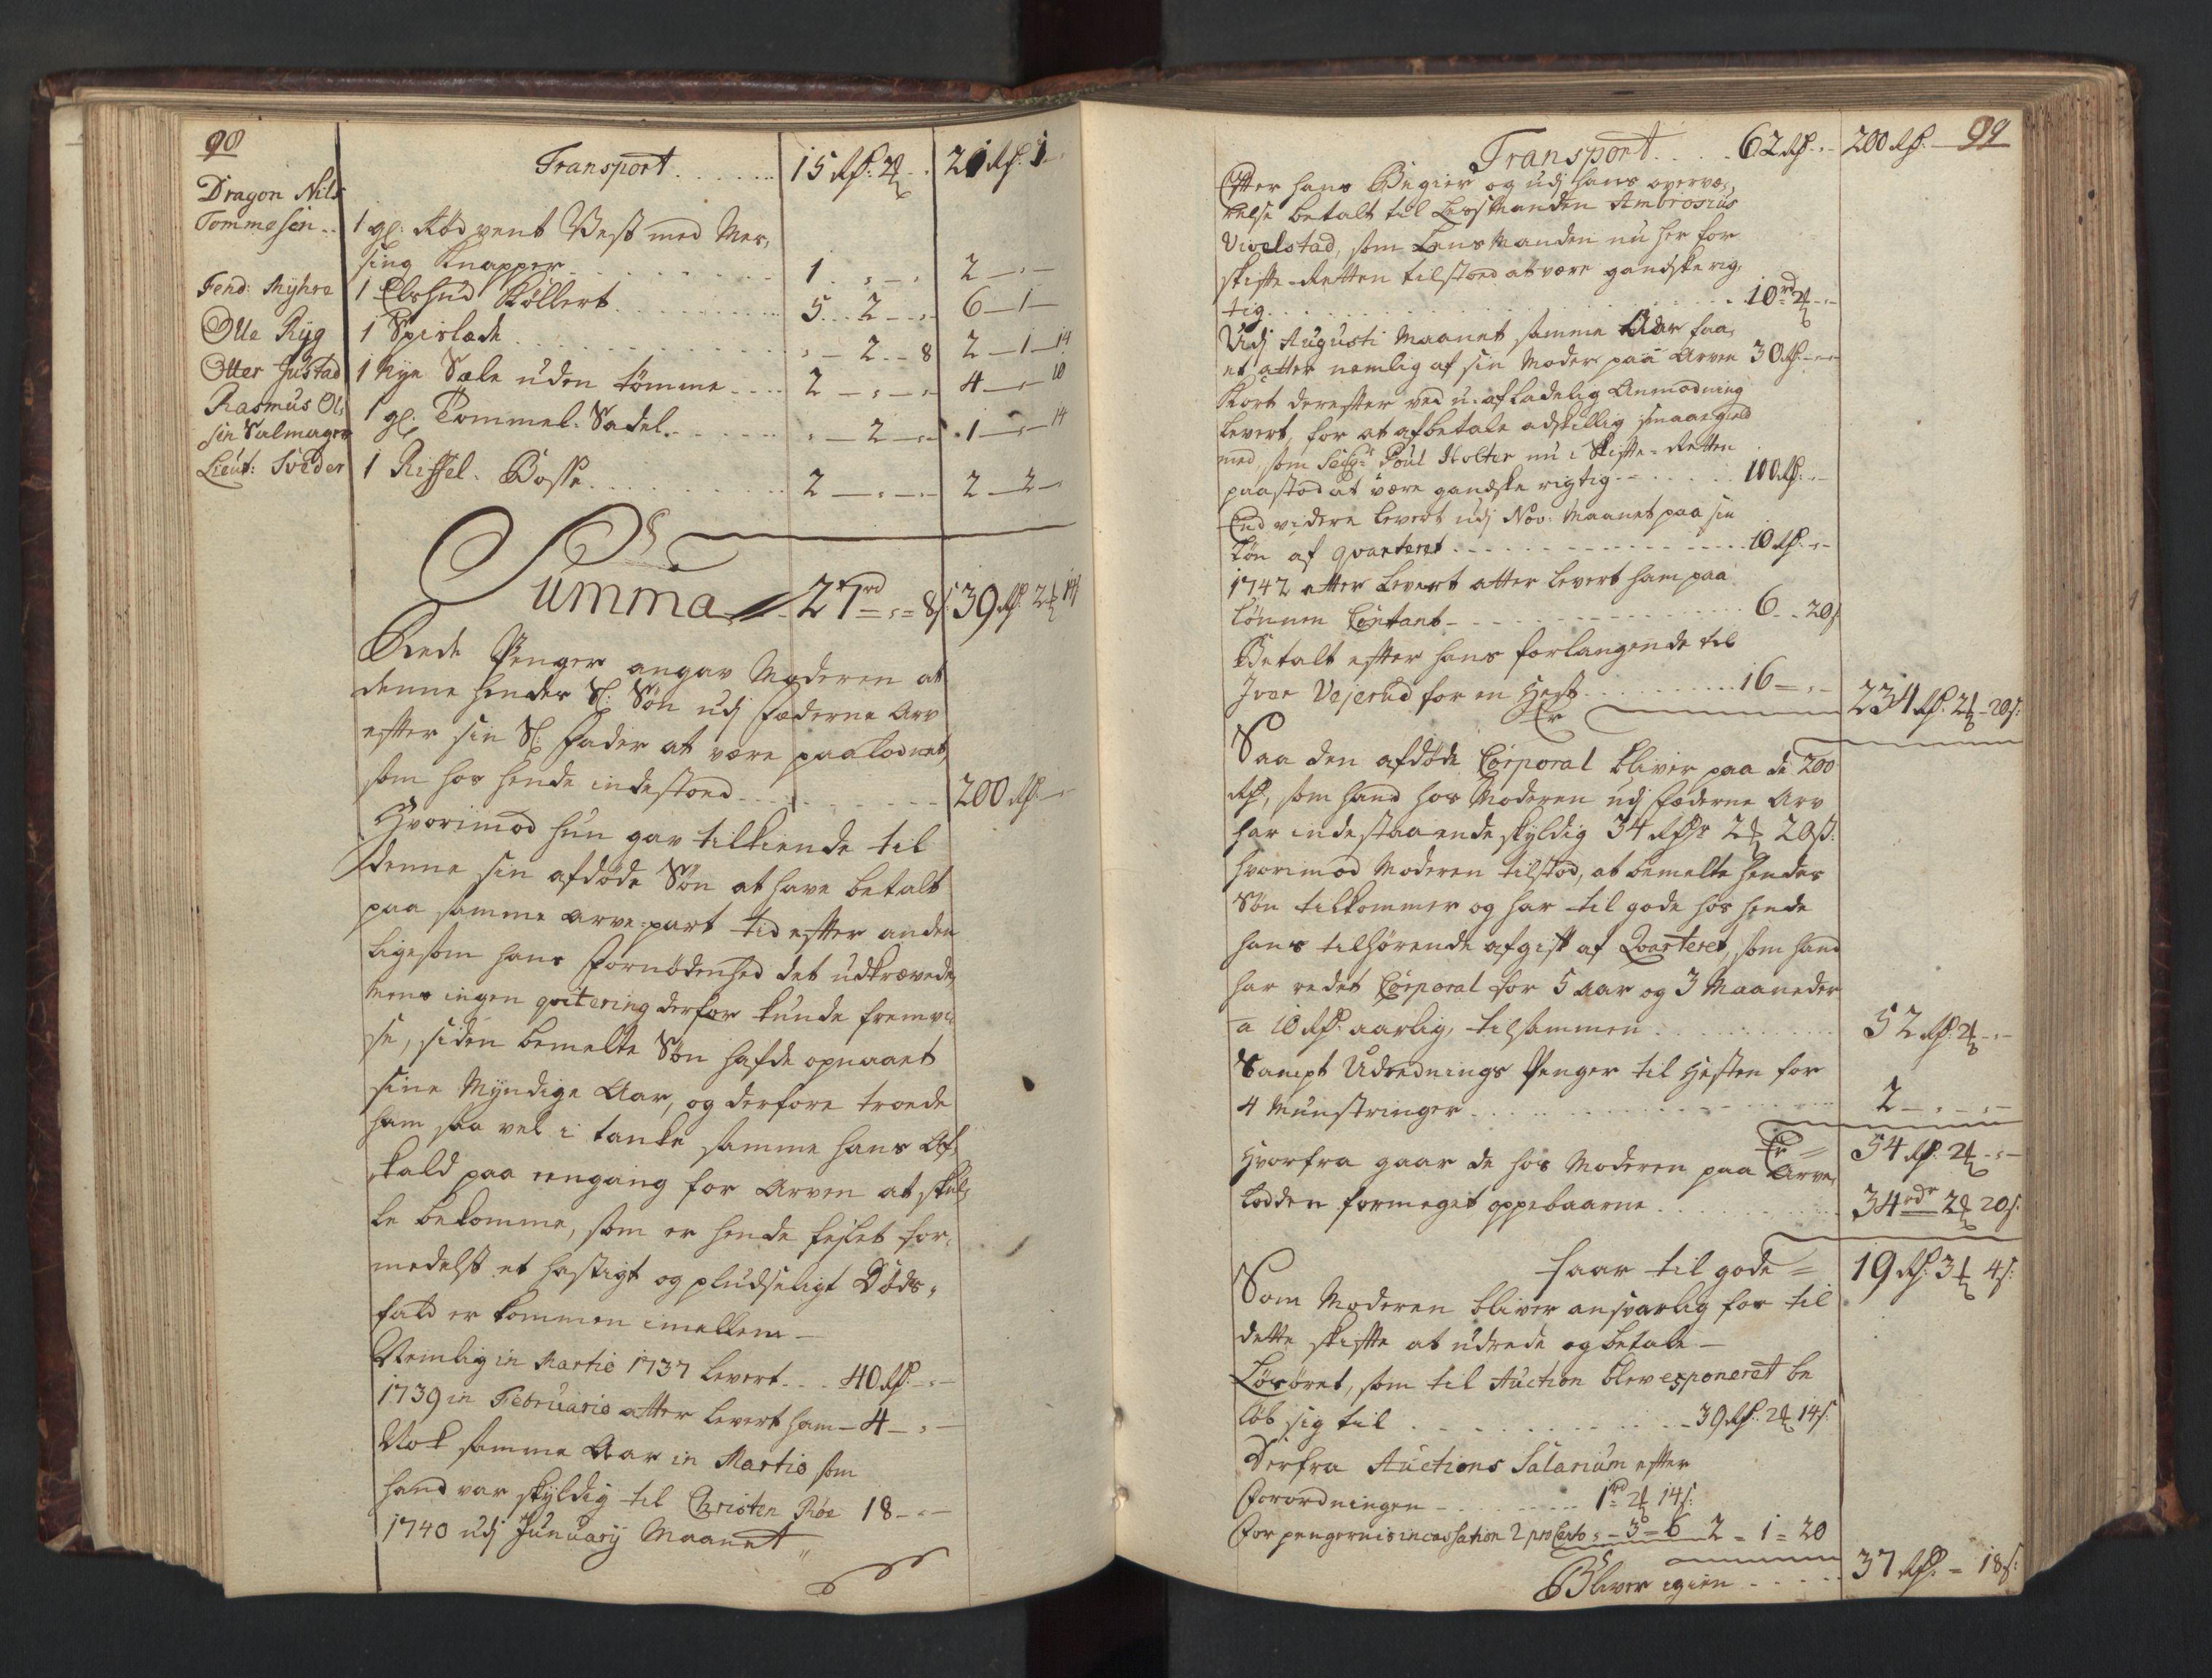 98
Transport . . . . . 15 Rd: 2 . 21 Rd: 1
Dragon Nils
Tommesen .. 1 gl: Rød vent Vest med Mes,
sing Knapper . . . . . 1 . „ - „ 2 - „ -
Fend: Myhre 1 Elshuds Køllert . . . . . 5 . . 2 - „ 6 - 1 -
Olle Ryg 1 Spislade . . . . . „ - 2 - - 8 2 - 1 - 14
Otter Justad 1 Nye Sæle uden tømme . . . 2 - „ - „ 4 - „ - 10
Rasmus Ol,
sen Salmager 1 gl: Pommel-Sadel . . . . „ - 2 - „ 1 - „ - 14
Lieut: Sveder 1 Riffel-Bøsse . . . . . 2 - „ - „ 2 - 2 -
Summa 27rd = „ = 8s 39 Rd: 2 14
Rede Penger angav Moderen at
denne hendes Sl: Søn udj fæderne Arv
efter sin Sl: Fader at være paalodnet
som hos hende indestoed . . . . . 200 Rd: -
Hvorimod hun gav tilkiende til
denne sin afdøde Søn at have betalt
paa samme arve-part tid efter anden
ligesom hans fornødenhed det udkrævede,
mens ingen qvitering derfor kunde fremvi
se, siden bemelte Søn hafde opnaaet
sine Myndige Aar, og derfore troede
ham saa vel i tanke samme hans Af,
kald paa eengang for Arven at skul,
le bekomme, som er hende feylet for,
medelst et hastigt og pludseligt Døds,
fald er kommen imellem -
Nemlig in Martio 1737 levert . . . 40 Rd: - „ -
1739 in Februario atter levert ham - 4 - „ -
Nok samme Aar in Martio som
hand var skyldig til Christen Røe 18 - „ -
1740 udj Januarij Maanet „
99
Transport . . . . 62 Rd: „ - 200 Rd: -
Efter hans Begier og udj hans overvæ,
relse betalt til Lensmanden Ambrosius
Vivelstad, som Lensmanden nu her for
skifte-Retten tilstoed at være gandske rig,
tig . . . . . 10rd 2 - „ -
Udj Augusti Maanet samme Aar faa,
et atter nemlig af sin Moder paa Arven 30 Rd: - „ -
Kort derefter ved u-afladelig Anmodning
levert, for at afbetale adskillig smaae gield
med, som Seigr Poul Holter nu i Skifte-Retten
paastod at være gandske rigtig . . . . . 100 Rd: „ -
End videre levert udj Nov: Maanet paa sin
Løn af qvarteret . . . . . 10 Rd: - „ -
1742 atter levert atter levert ham paa
Lønnen Contant . . . . . 6 - - 20s
Betalt efter hans forlangende til
Iver Vejerud for en Hest . . . . . 16 - „ -
Er 234 Rd: 2 - 20s:
Saa den afdøde Corporal bliver paa de 200
Rd:, som hand hos Moderen udj fæderne Arv
har indestaaende skyldig 34 Rdr 2 20s:
hvorimod Moderen tilstod, at bemelte hendes
Søn tilkommer og har til gode hos hende
hans tilhørende afgift af Qvarteret, som hand
har redet Corporal for 5 aar og 3 Maaneder
a 10 Rd: aarlig, tilsammen . . . . . 52 Rd: 2 - „ -
Sampt Udrednings Penger til Hesten for
4 Munstringer . . . . . 2 - „ - „ -
Er = 54 Rd: 2 - „ -
Hvorfra gaar de hos Moderen paa Arve,
lodden formeget oppebaarne . . . . . 34rdr 2 20s:
faar til gode = 19 Rd: 3 4s:
Som Moderen bliver ansvarlig for til
dette skifte at udrede og betale -
Løsøret, som til Auction blev exponeret be
løb sig til . . . . . 39 Rd: 2 14s:
Derfra Auctions Salarium efter
Forordningen - . . . . . 1rd 2 14s:
For pengernis incassation 2 pro Cento „ - 3 = 6 2 = 1 = 20
Bliver igien . . . . . 37 Rd: = 18s: